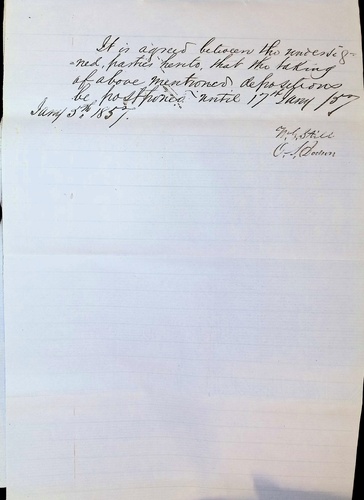 It is agreed between the undersig-
ned, parties hereto, that the taking
of above mentioned depositions
be postponed until 17th Jany
Jany 5th 1857.
W. G. Still
C. S. Dodson